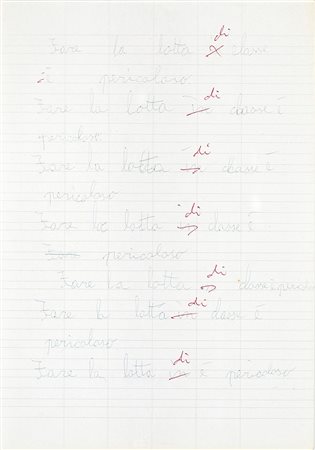 di
Fare la lotta classe
È pericoloso
di
Fare la lotta in classe è
pericoloso
di
Fare la lotta in classe è
pericoloso
di
Fare la lotta classe è
Fare pericoloso
di
Fare la lotta classe è pericoloso
di
Fare la lotta in classe è
pericoloso
di
Fare la lotta in è periodoso